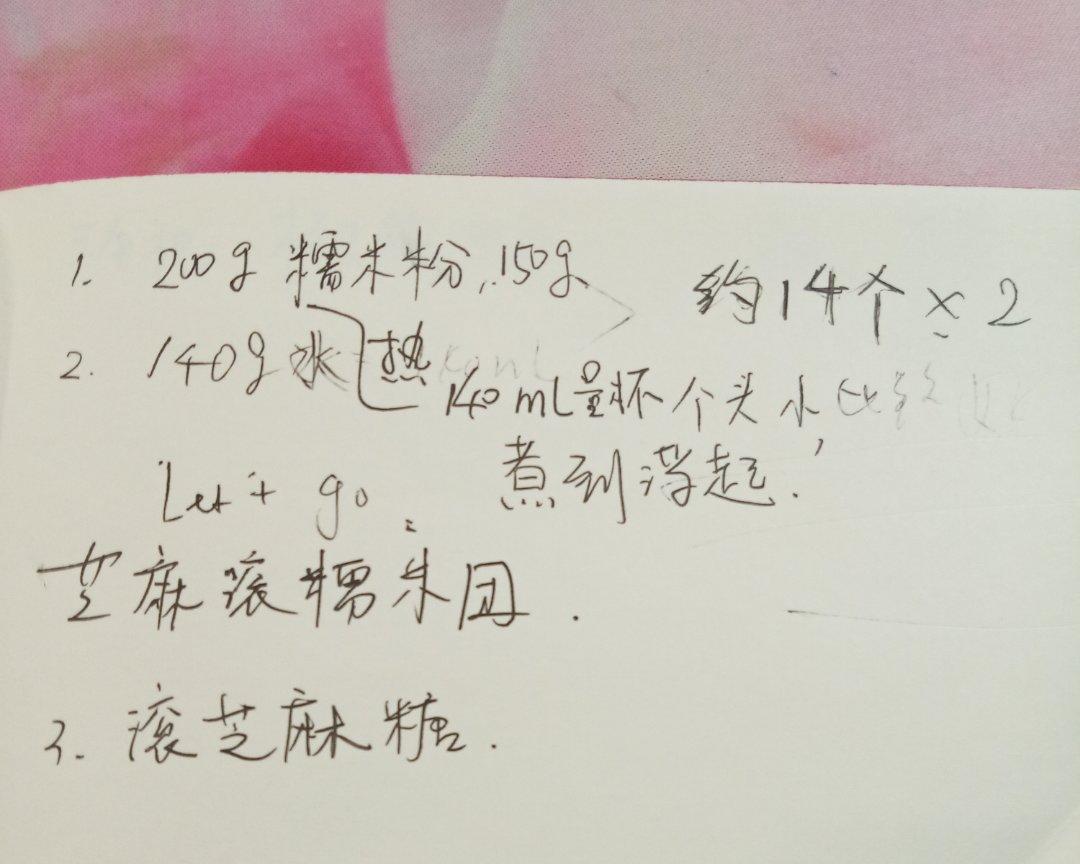 1. 200g 糯米粉, 150g 约14个 × 2
2. 140g 水 热
140mL量杯 个头小
Let't go. 煮到浮起.
芝麻滚糯米团.
3. 滚芝麻糖.